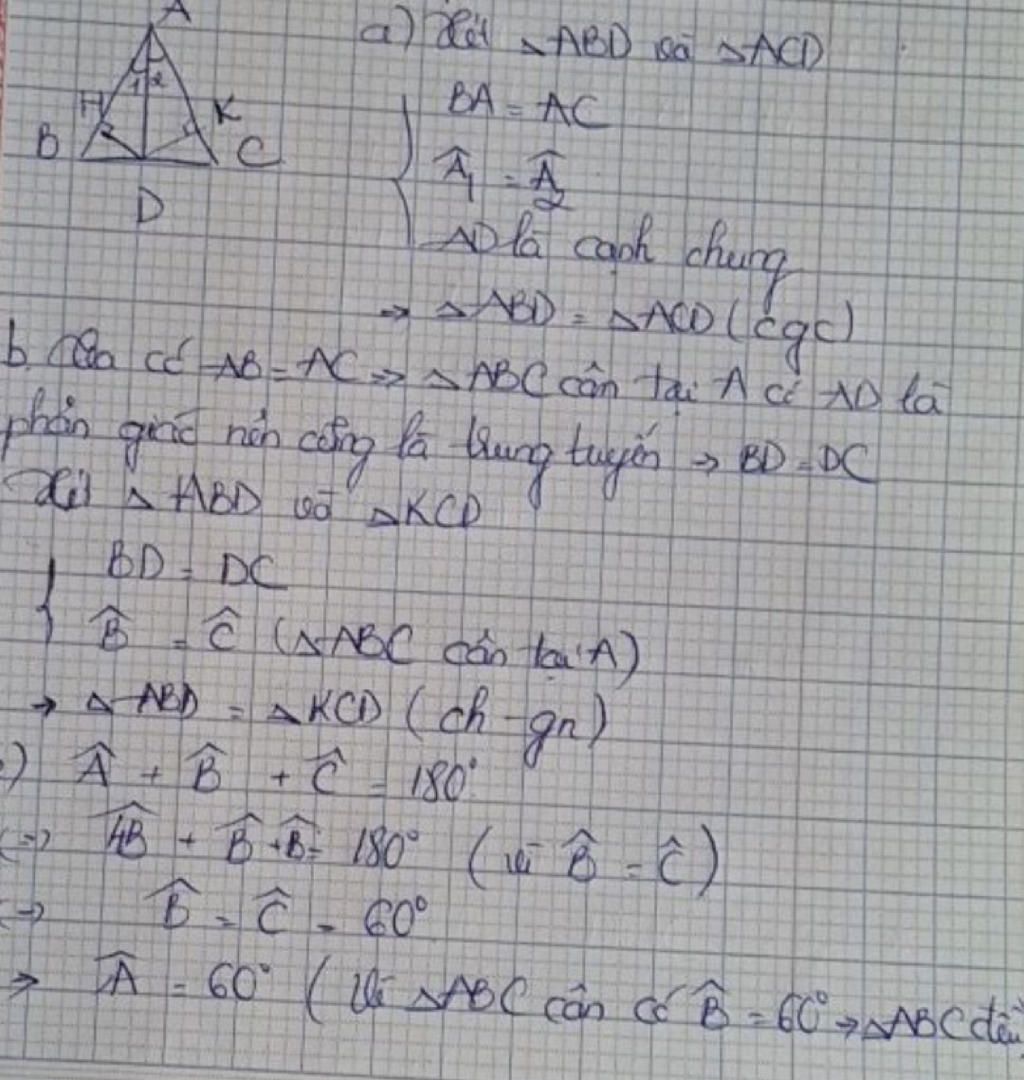 A
1 2
H
K
B
C
D
a) Xét △ABD và △ACD
BA = AC
Â₁ = Â₂
AD là cạnh chung
→ △ABD = △ACD (cgc)
b. Ta có AB = AC => △ABC cân tại A có AD là
phân giác nên cũng là trung tuyến → BD = DC
Xét △HBD và △KCD
BD = DC
B̂ = Ĉ (△ABC cân tại A)
→ △HBD = △KCD (ch - gn)
) Â + B̂ + Ĉ = 180°
<=> + B̂ + B̂ = 180° (vì B̂ = Ĉ)
<=> B̂ = Ĉ = 60°
=> Â = 60° (Vì △ABC cân có B̂ = 60° → △ABC đều